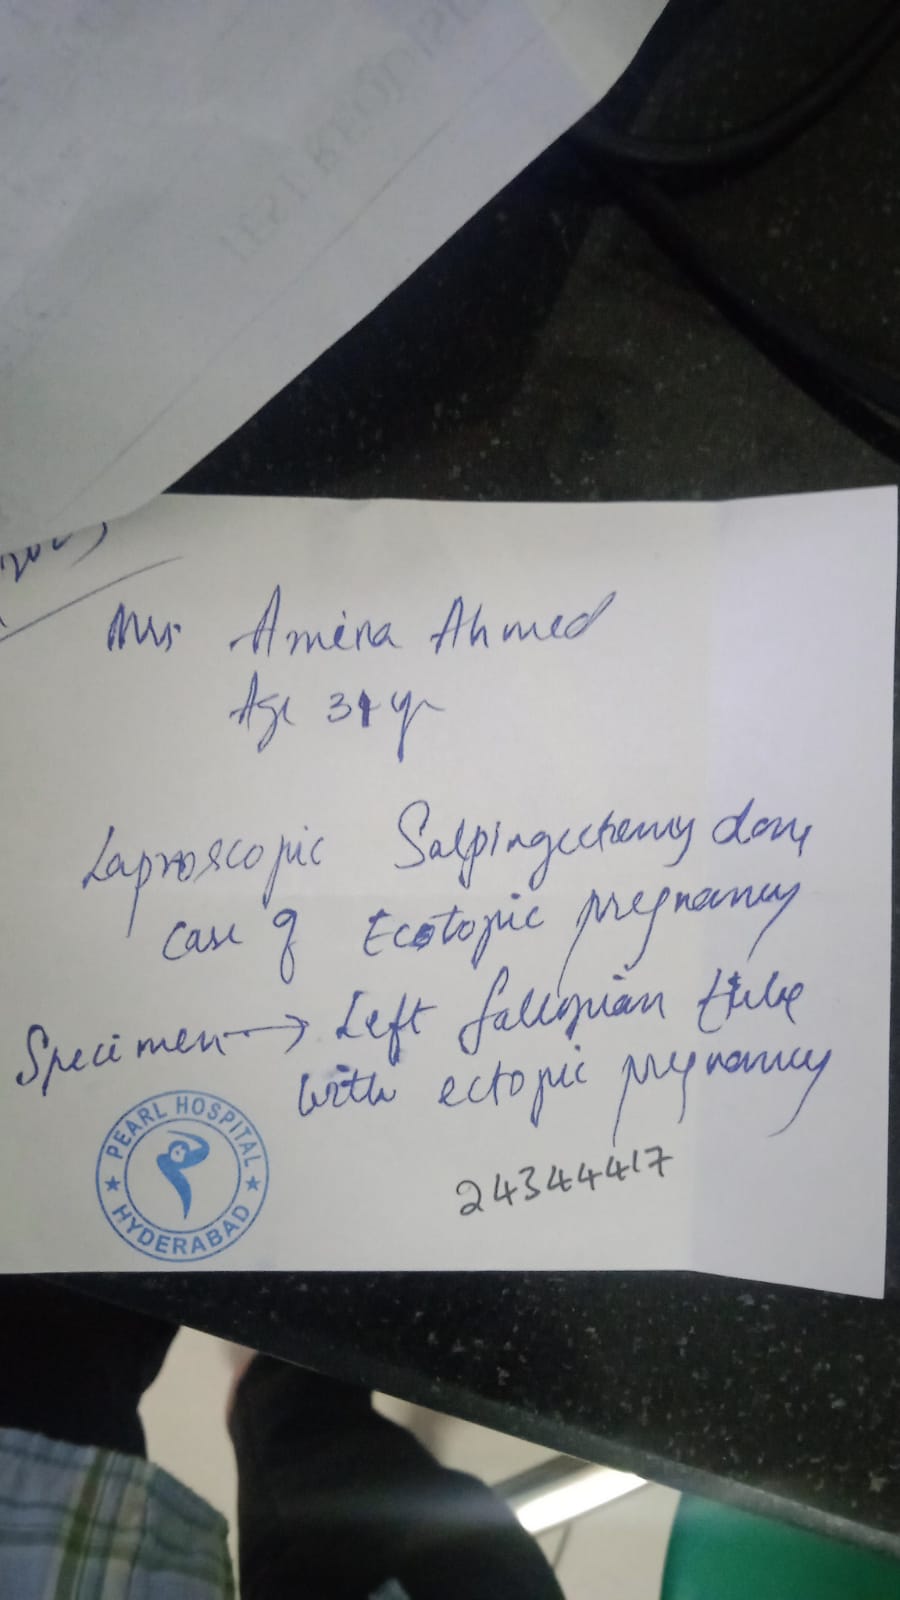 TEST REQUISI
Mrs Amena Ahmed
Age 31 yr
Laproscopic Salpingectomy done
Case of Ecotopic pregnancy
Specimen → Left fallopian tube
with ectopic pregnancy
24344417
PEARL HOSPITAL
★ HYDERABAD ★